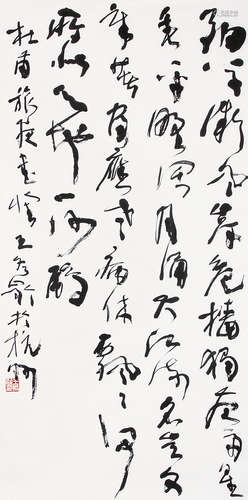 細草微風岸危檣獨夜舟星
垂平野闊月涌大江流名豈文
章著官應老病休飄々何
所似天地一沙鷗
杜甫旅夜書懷王冬齡於杭州